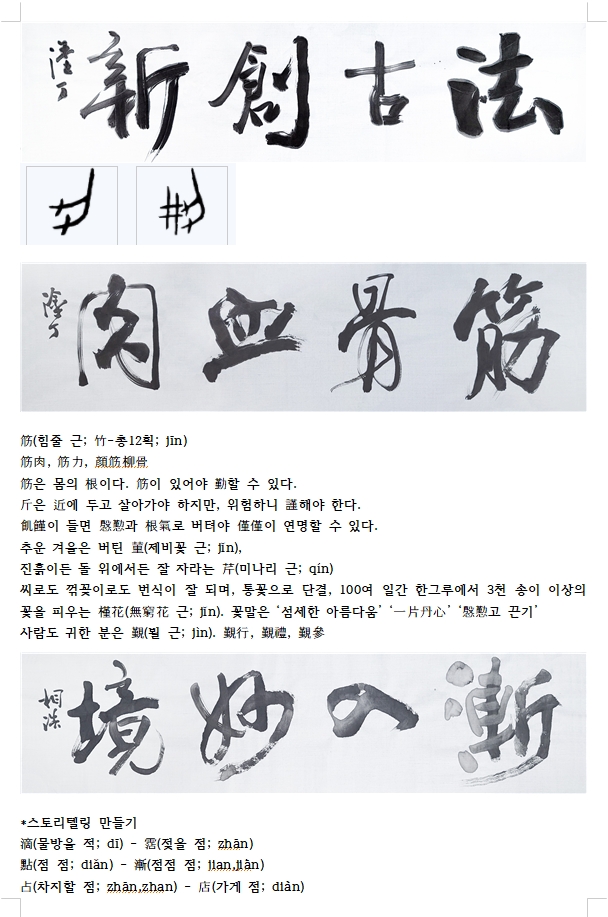 法古創新
筋骨血肉
筋(힘줄 근; 竹-총12획; jīn)
筋肉, 筋力, 顔筋柳骨
筋은 몸의 根이다. 筋이 있어야 勤할 수 있다.
斤은 近에 두고 살아가야 하지만, 위험하니 謹해야 한다.
飢饉이 들면 慇懃과 根氣로 버텨야 僅僅이 연명할 수 있다.
추운 겨울은 버틴 菫(제비꽃 근; jǐn),
진흙이든 돌 위에서든 잘 자라는 芹(미나리 근; qín)
씨로도 꺾꽂이로도 번식이 잘 되며, 통꽃으로 단결, 100여 일간 한그루에서 3천 송이 이상의
꽃을 피우는 槿花(無窮花 근; jǐn). 꽃말은 ‘섬세한 아름다움’ ‘一片丹心’ ‘慇懃고 끈기’
사람도 귀한 분은 覲(뵐 근; jìn). 覲行, 覲禮, 覲參
漸入妙境
*스토리텔링 만들기
滴(물방울 적; dī) - 霑(젖을 점; zhān)
點(점 점; diǎn) - 漸(점점 점; jian,jiàn)
占(차지할 점; zhān,zhan) - 店(가게 점; diàn)